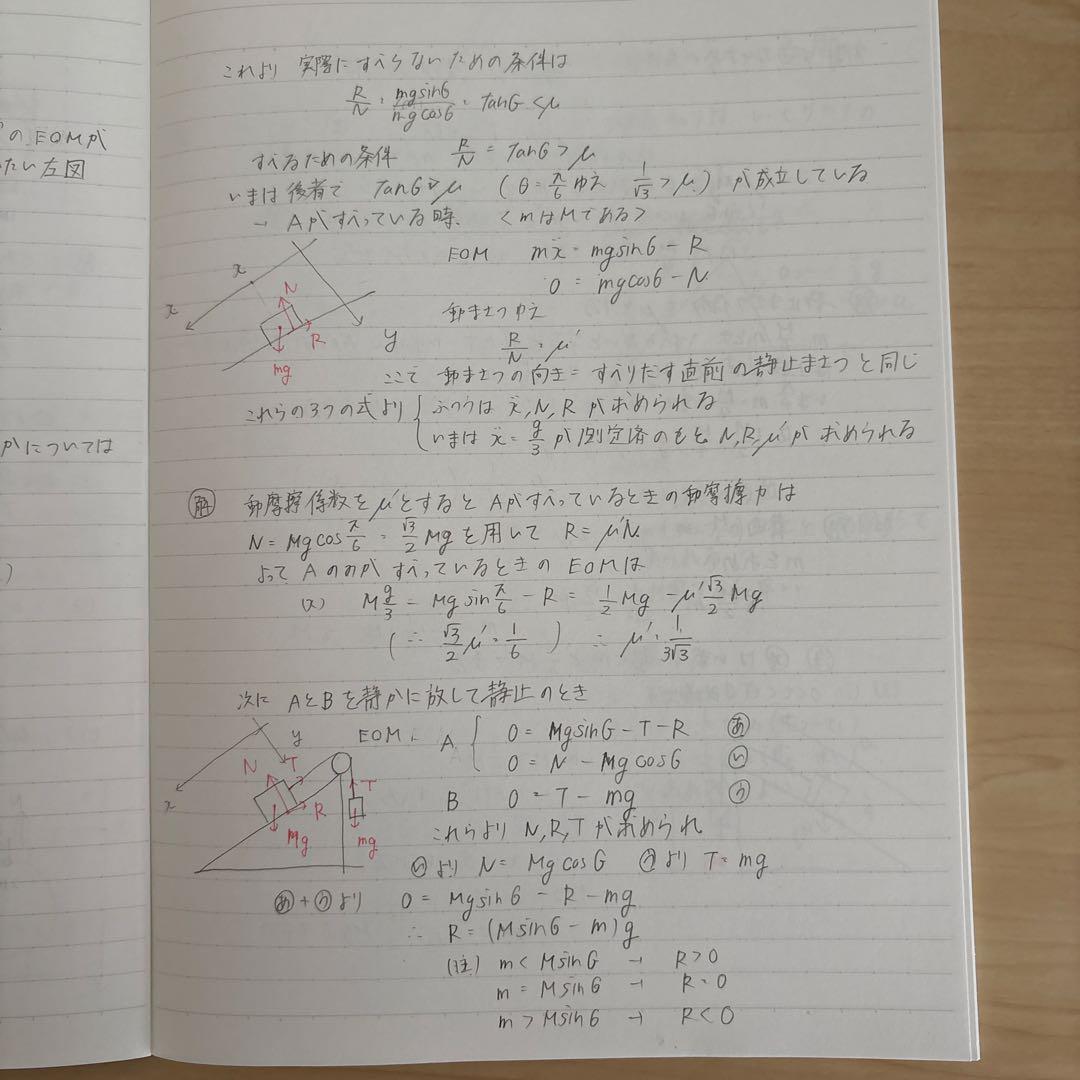 のEOMが
たい左図
かについては
これより 実際にすべらないための条件は
R/N = mg sinθ/mg cosθ = tanθ < μ
すべるための条件 R/N = tanθ > μ
いまは後者で tanθ > μ (θ = π/6 ゆえ 1/√3 > μ) が成立している
→ Aがすべっている時、 <mはMである>
EOM mẍ = mg sinθ - R
0 = mg cosθ - N
動まさつゆえ
R/N = μ'
x
x
N
R
mg
y
ここで 動まさつの向き = すべりだす直前の静止まさつと同じ
これらの3つの式より { ふつうは ẍ, N, R が求められる
いまは ẍ = g/3 が測定済のもと、N, R, μ' が求められる
解 動摩擦係数をμ'とすると Aがすべっているときの動摩擦力は
N = Mg cos π/6 = √3/2 Mg を用いて R = μ'N.
よって Aのみが すべっているときの EOMは
(x) M g/3 = Mg sin π/6 - R = 1/2 Mg - μ' √3/2 Mg
( ∴ √3/2 μ' = 1/6 ) ∴ μ' = 1/3√3
次に AとBを静かに放して静止のとき
EOM: A { 0 = Mg sinθ - T - R あ
0 = N - Mg cosθ い
B 0 = T - mg う
y
x
N
T
R
Mg
T
mg
これらより N, R, T が求められ
いより N = Mg cosθ うより T = mg
あ + うより 0 = Mg sinθ - R - mg
∴ R = (M sinθ - m)g
(注) m < M sinθ → R > 0
m = M sinθ → R = 0
m > M sinθ → R < 0